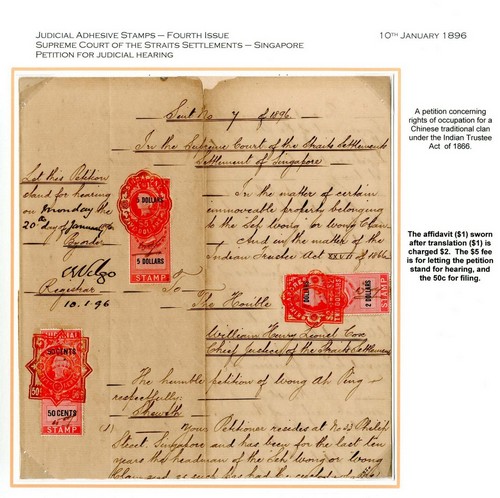 JUDICIAL ADHESIVE STAMPS – FOURTH ISSUE
10TH JANUARY 1896
SUPREME COURT OF THE STRAITS SETTLEMENTS – SINGAPORE
PETITION FOR JUDICIAL HEARING
A petition concerning
rights of occupation for a
Chinese traditional clan
under the Indian Trustee
Act of 1866.
The affidavit ($1) sworn
after translation ($1) is
charged $2. The $5 fee
is for letting the petition
stand for hearing, and
the 50c for filing.
Suit No 7 of 1896
In the Supreme Court of the Straits Settlements
Settlement of Singapore
Let this Petition
stand for hearing
on Monday the
20th day of January 96
By order
Registrar
10.1.96
In the matter of certain
immoveable property belonging
to the Seh Wong or Wong Clan
And in the matter of the
Indian Trustee Act XXVII of 1866
To
The Honble
William Henry Lionel Cox
Chief Justice of the Straits Settlements
The humble petition of Wong Ah Ping
respectfully
Sheweth
(1) Your Petitioner resides at No 23 Philip
Street Singapore and has been for the last ten
years the headman of the Seh Wong or Wong
Clan and as such has had the
5 DOLLARS
5 DOLLARS
STAMP
2 DOLLARS
2 DOLLARS
STAMP
50 CENTS
50 CENTS
STAMP